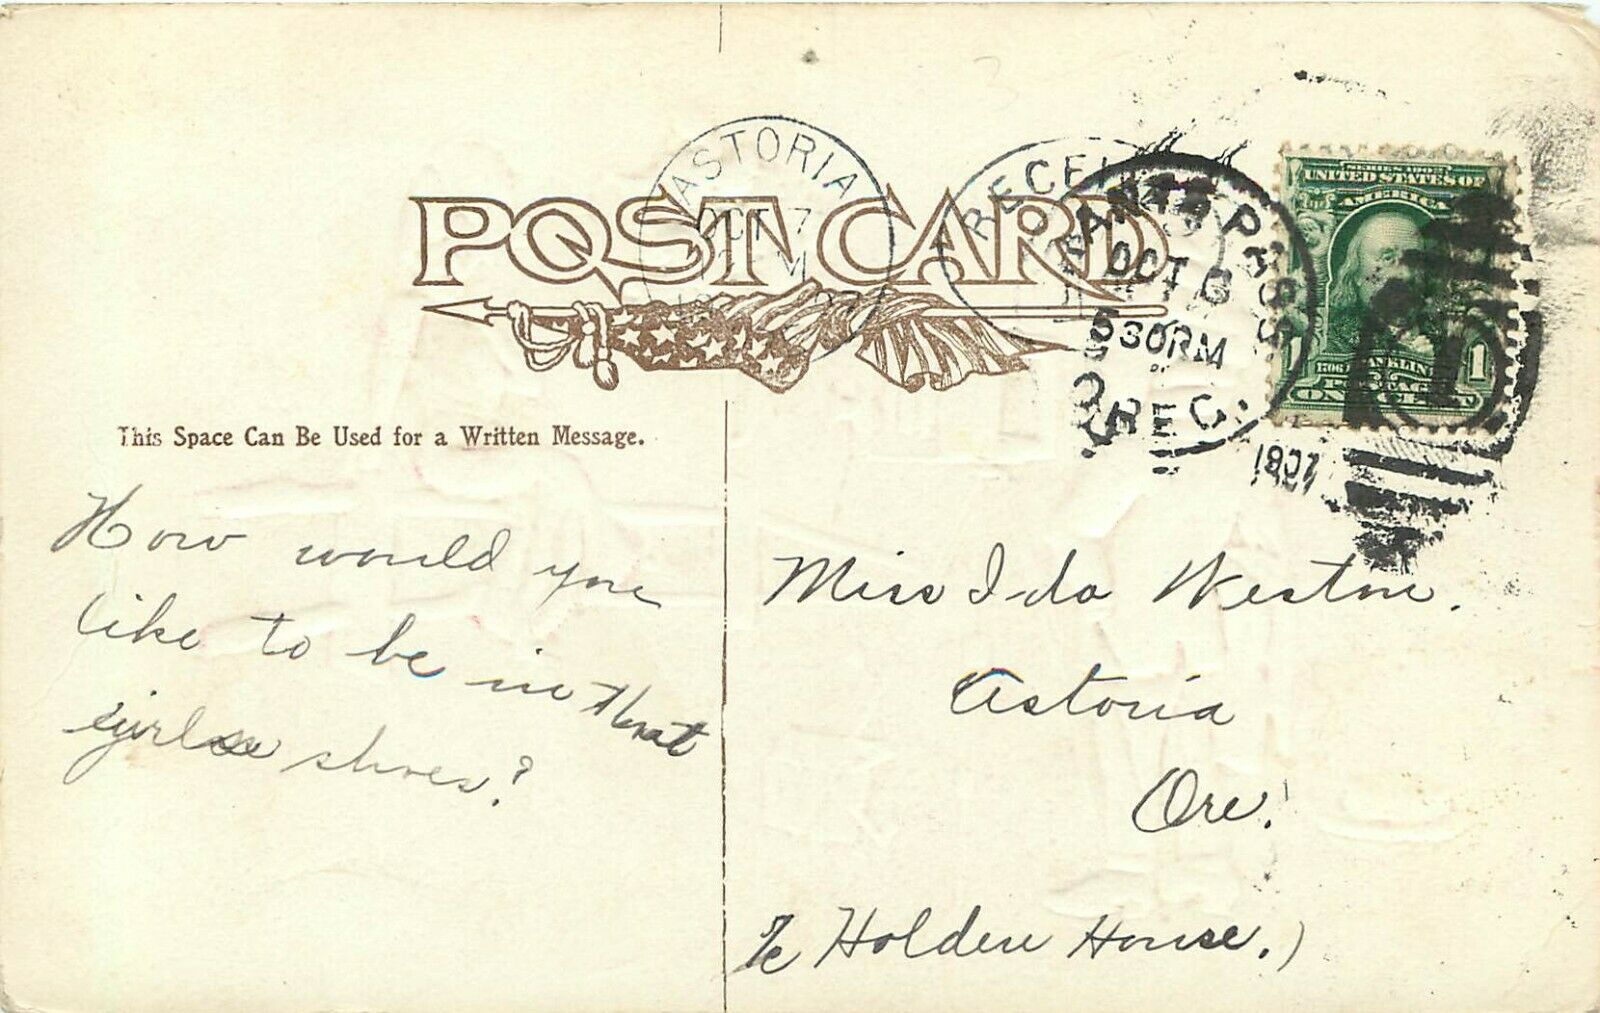 POST CARD
ASTORIA
OCT 7
RECEI
GRANTS PASS
OCT 6
530 PM
OREG.
1907
UNITED STATES OF
AMERICA
FRANKLIN
POSTAGE
ONE CENT
1
This Space Can Be Used for a Written Message.
How would you
like to be in that
girls shoes?
Miss Ida Weston.
Astoria
Ore.
℅ Holden House.)